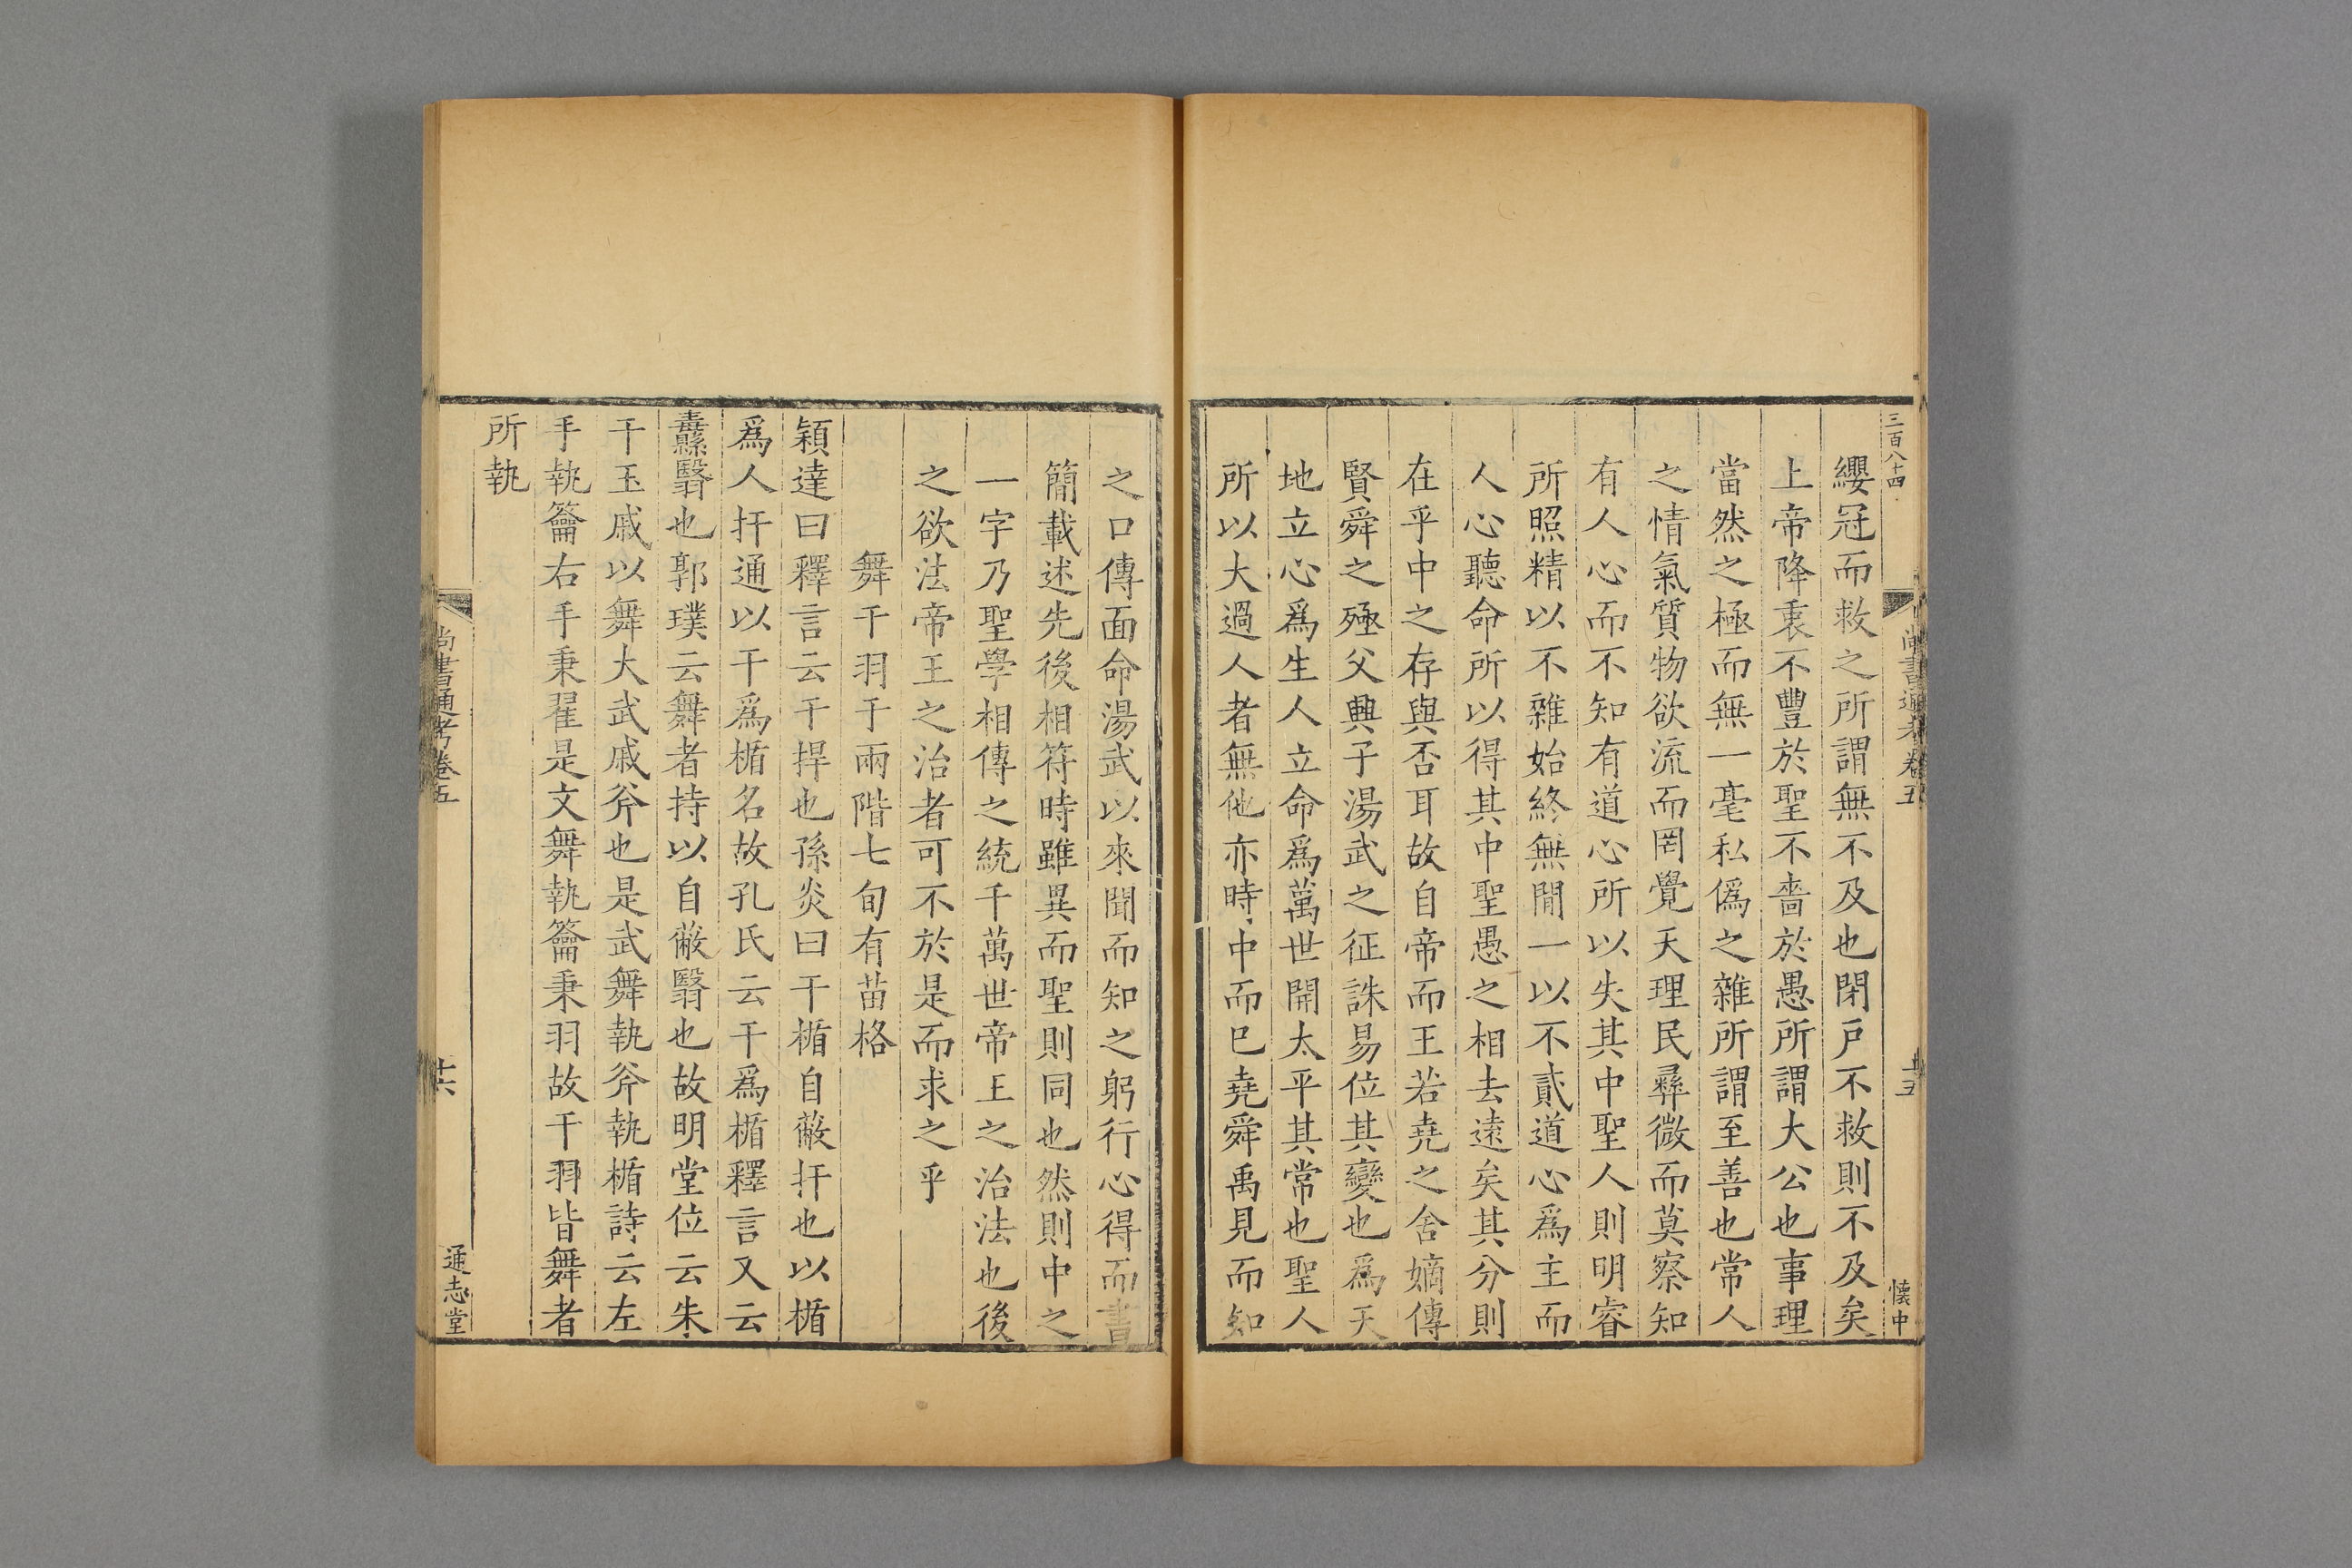 三百八十四
尚書通考卷五
廿五
懐中
纓冠而救之所謂無不及也閉戸不救則不及矣
上帝降衷不豐於聖不嗇於愚所謂大公也事理
當然之極而無一毫私僞之雜所謂至善也常人
之情氣質物欲流而罔覺天理民彛微而莫察知
有人心而不知有道心所以失其中聖人則明睿
所照精以不雜始終無閒一以不貳道心爲主而
人心聽命所以得其中聖愚之相去遠矣其分則
在乎中之存與否耳故自帝而王若堯之舍嫡傳
賢舜之殛父興子湯武之征誅易位其變也爲天
地立心爲生人立命爲萬世開太平其常也聖人
所以大過人者無他亦時中而已堯舜禹見而知
之口傳面命湯武以來聞而知之躬行心得而書
簡載述先後相符時雖異而聖則同也然則中之
一字乃聖學相傳之統千萬世帝王之治法也後
之欲法帝王之治者可不於是而求之乎
舞干羽于兩階七旬有苗格
穎達曰釋言云干捍也孫炎曰干楯自蔽扞也以楯
爲人扞通以干爲楯名故孔氏云干爲楯釋言又云
纛翳也郭璞云舞者持以自蔽翳也故明堂位云朱
干玉戚以舞大武戚斧也是武舞執斧執楯詩云左
手執籥右手秉翟是文舞執籥秉羽故干羽皆舞者
所執
尚書通考卷五
廿六
通志堂